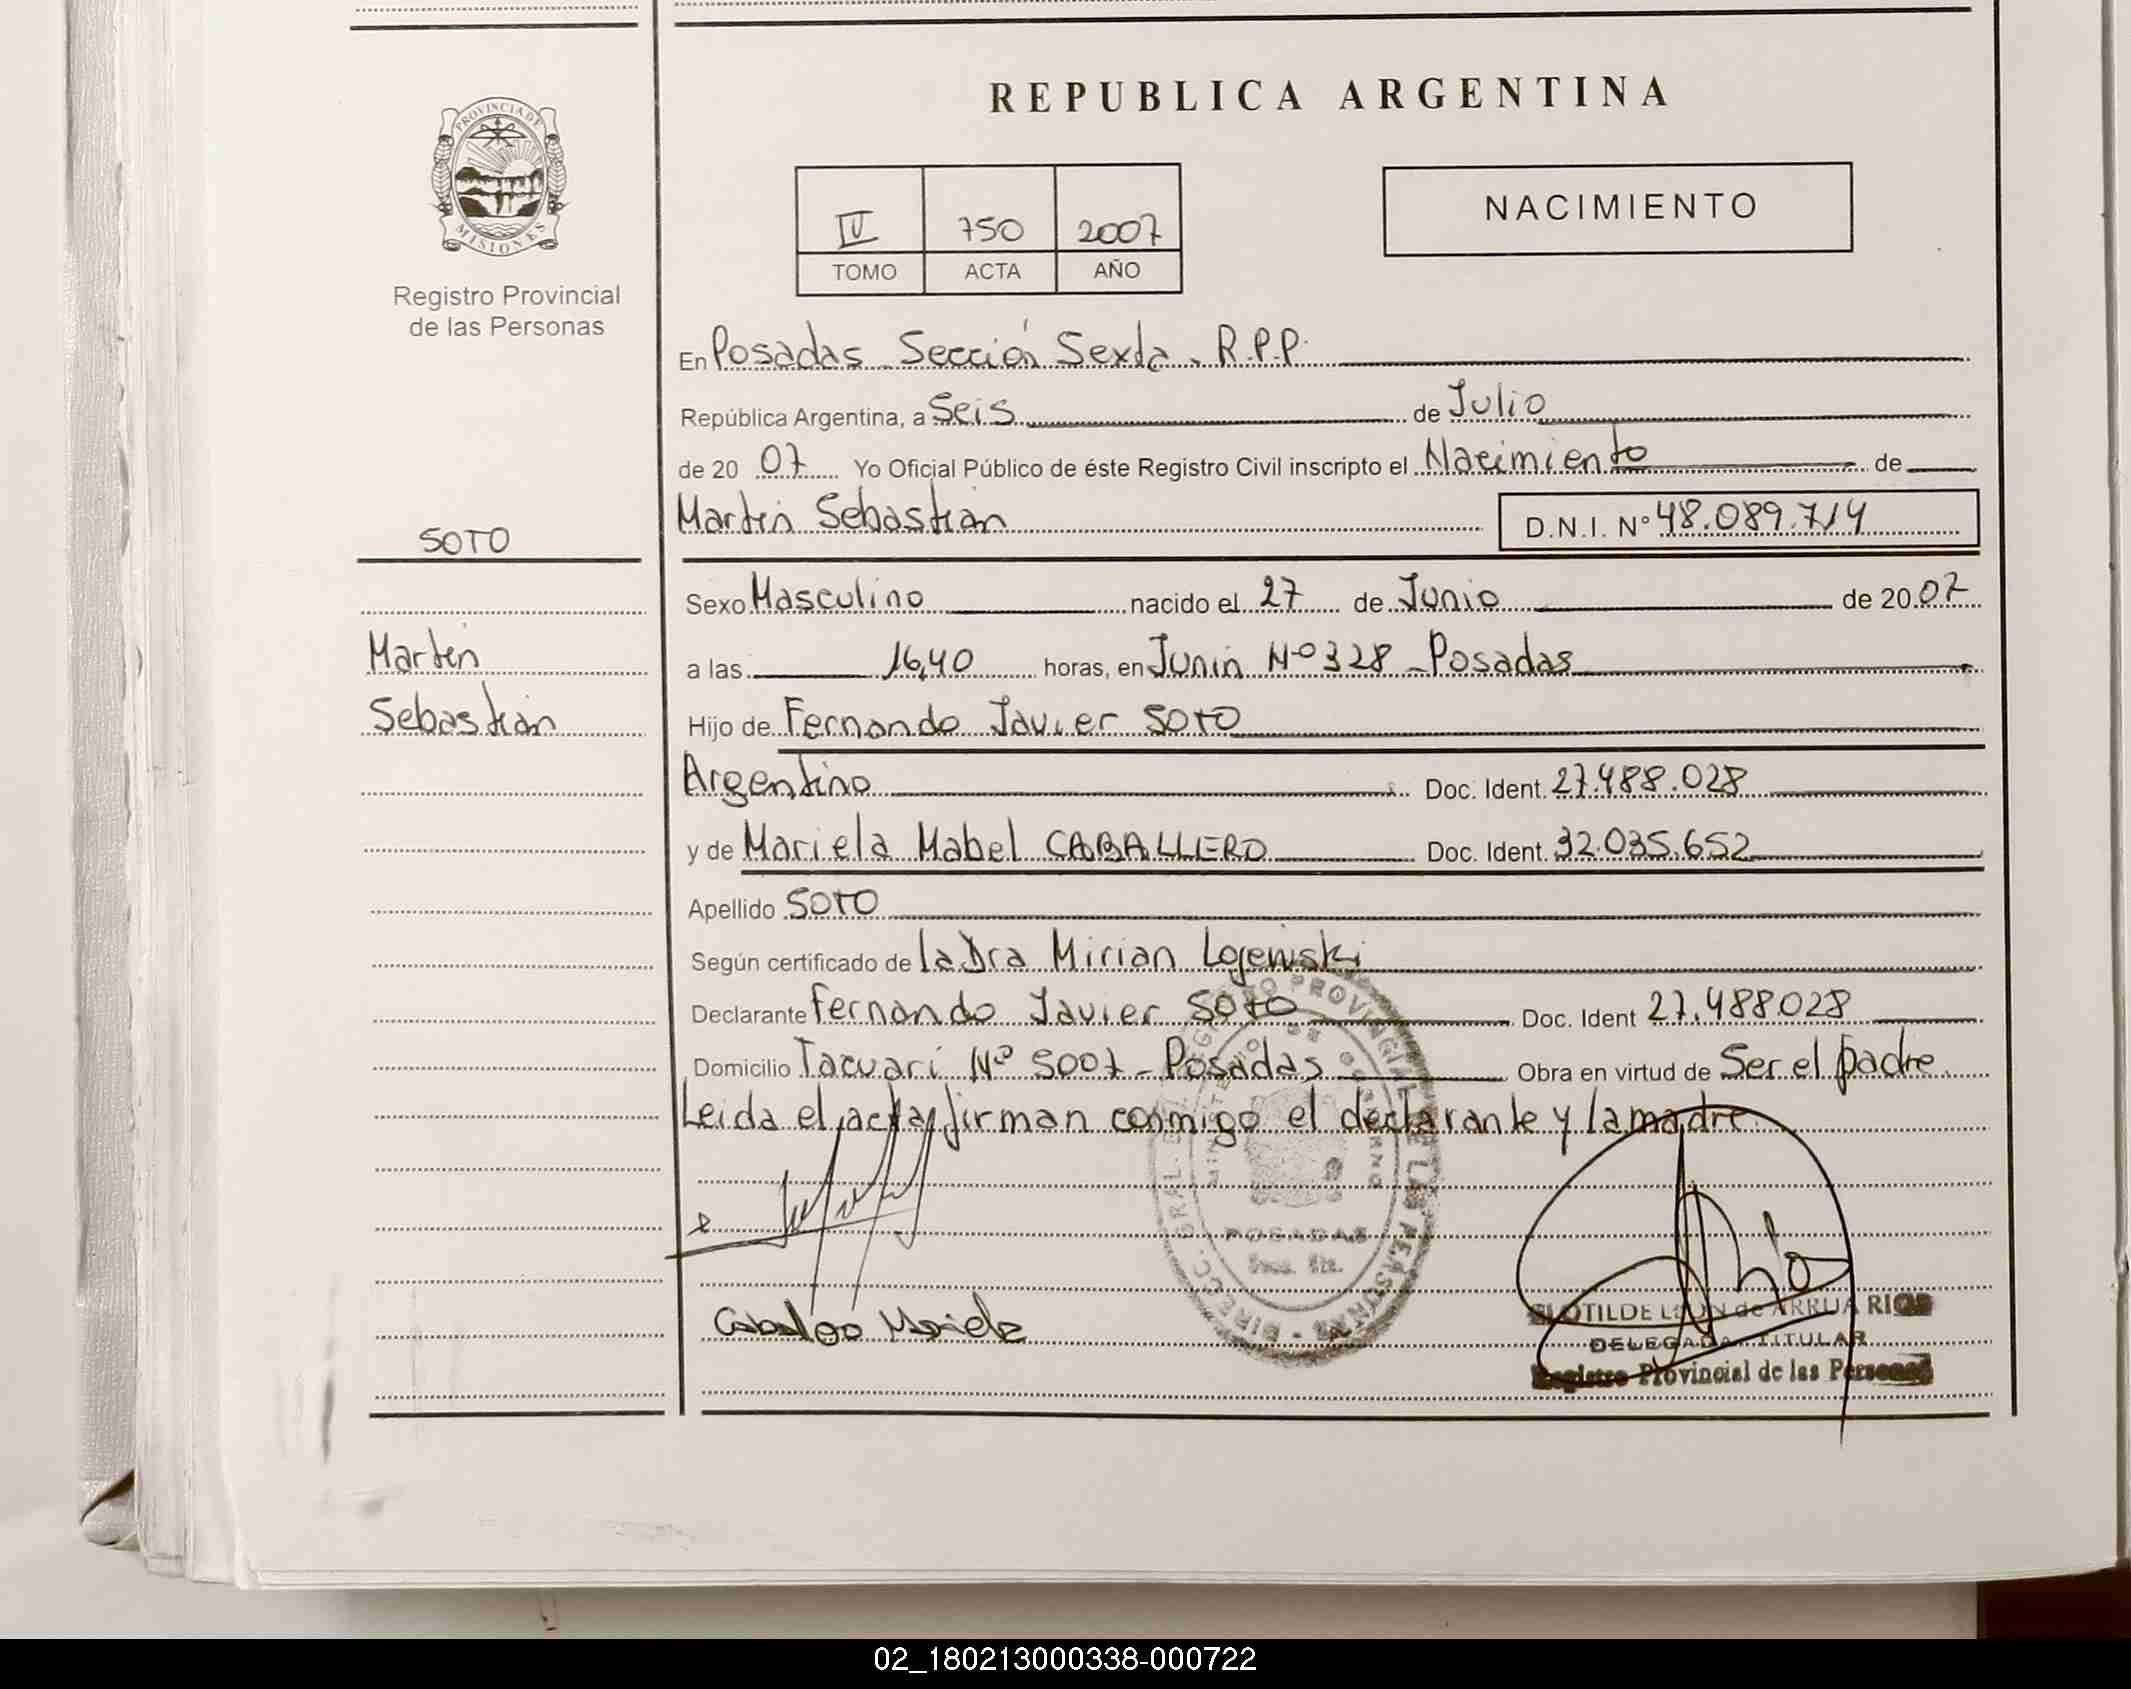 REPUBLICA ARGENTINA
PROVINCIA DE
MISIONES
Registro Provincial
de las Personas
IV 750 2007
TOMO ACTA AÑO
NACIMIENTO
En Posadas Sección Sexta - R.P.P.
República Argentina, a Seis de Julio
de 20 07 Yo Oficial Público de éste Registro Civil inscripto el Nacimiento de
Martín Sebastián D.N.I. Nº 48.089.714
SOTO
Sexo Masculino nacido el 27 de Junio de 20 07
Martín
a las 16,40 horas, en Junín Nº 328 - Posadas
Sebastián
Hijo de Fernando Javier SOTO
Argentino Doc. Ident. 27.488.028
y de Mariela Mabel CABALLERO Doc. Ident. 32.035.652
Apellido SOTO
Según certificado de la Dra Mirian Lojewski
Declarante Fernando Javier SOTO Doc. Ident 27.488028
Domicilio Tacuarí Nº 5007 - Posadas Obra en virtud de Ser el padre
Leida el acta, firman conmigo el declarante y la madre
POSADAS
Caballero Mariela
CLOTILDE LEON de ARRUA RIOS
DELEGADA TITULAR
Registro Provincial de las Personas
02_180213000338-000722